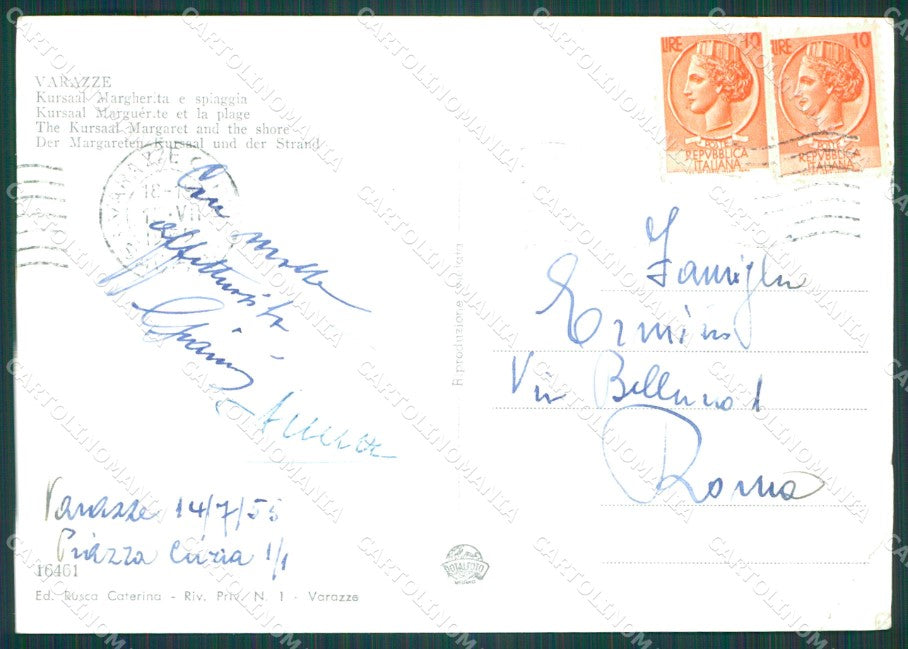 VARAZZE
Kursaal Margherita e spiaggia
Kursaal Marguerite et la plage
The Kursaal Margaret and the shore
Der Margareten Kursaal und der Strand
LIRE 10
POSTE
REPVBBLICA
ITALIANA
LIRE 10
POSTE
REPVBBLICA
ITALIANA
VARAZZE
18-1
VII
Con molta
affettuosità
Gianni
Anna
Famiglia
Erminio
Via Belluno 1
Roma
Varazze 14/7/55
Piazza 1/1
16461
Ed. Rusca Caterina - Riv. Priv. N. 1 - Varazze
Riproduzione vietata
TOTALFOTO
MILANO
CARTOLINOMANIA